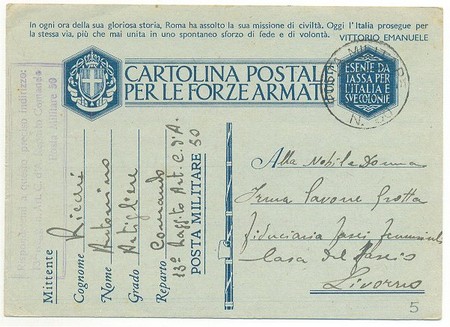 In ogni ora della sua gloriosa storia, Roma ha assolto la sua missione di civiltà. Oggi l'Italia prosegue per
la stessa via, più che mai unita in uno spontaneo sforzo di fede e di volontà. VITTORIO EMANUELE
CARTOLINA POSTALE
PER LE FORZE ARMATE
ESENTE DA
TASSA PER
L'ITALIA E
SVE COLONIE
POSTA MILITARE
N. 50
Posta Militare 50
Mittente
Cognome Ricché
Nome Antonino
Grado Artigliere
Reparto Comando
13° Ragg.to Art. C. d'A.
POSTA MILITARE 50
Alla Nobile Donna
Irma Pavone Grotta
Fiduciaria Fasci Femminili
Casa del Fascio
Livorno
5